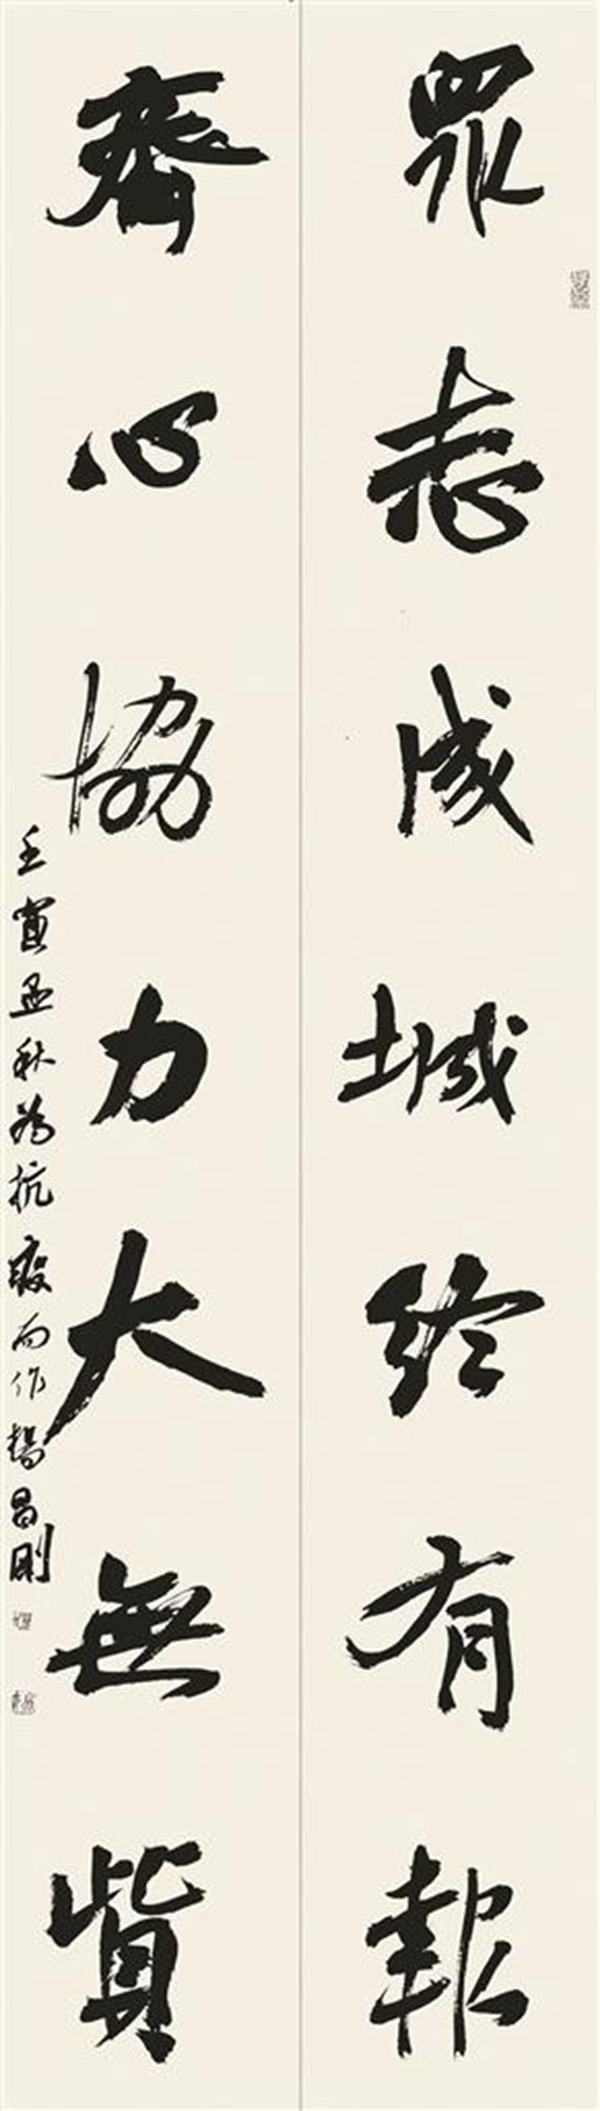 眾志成城終有報
齊心協力大無貲
壬寅孟秋為抗疫而作楊昌剛